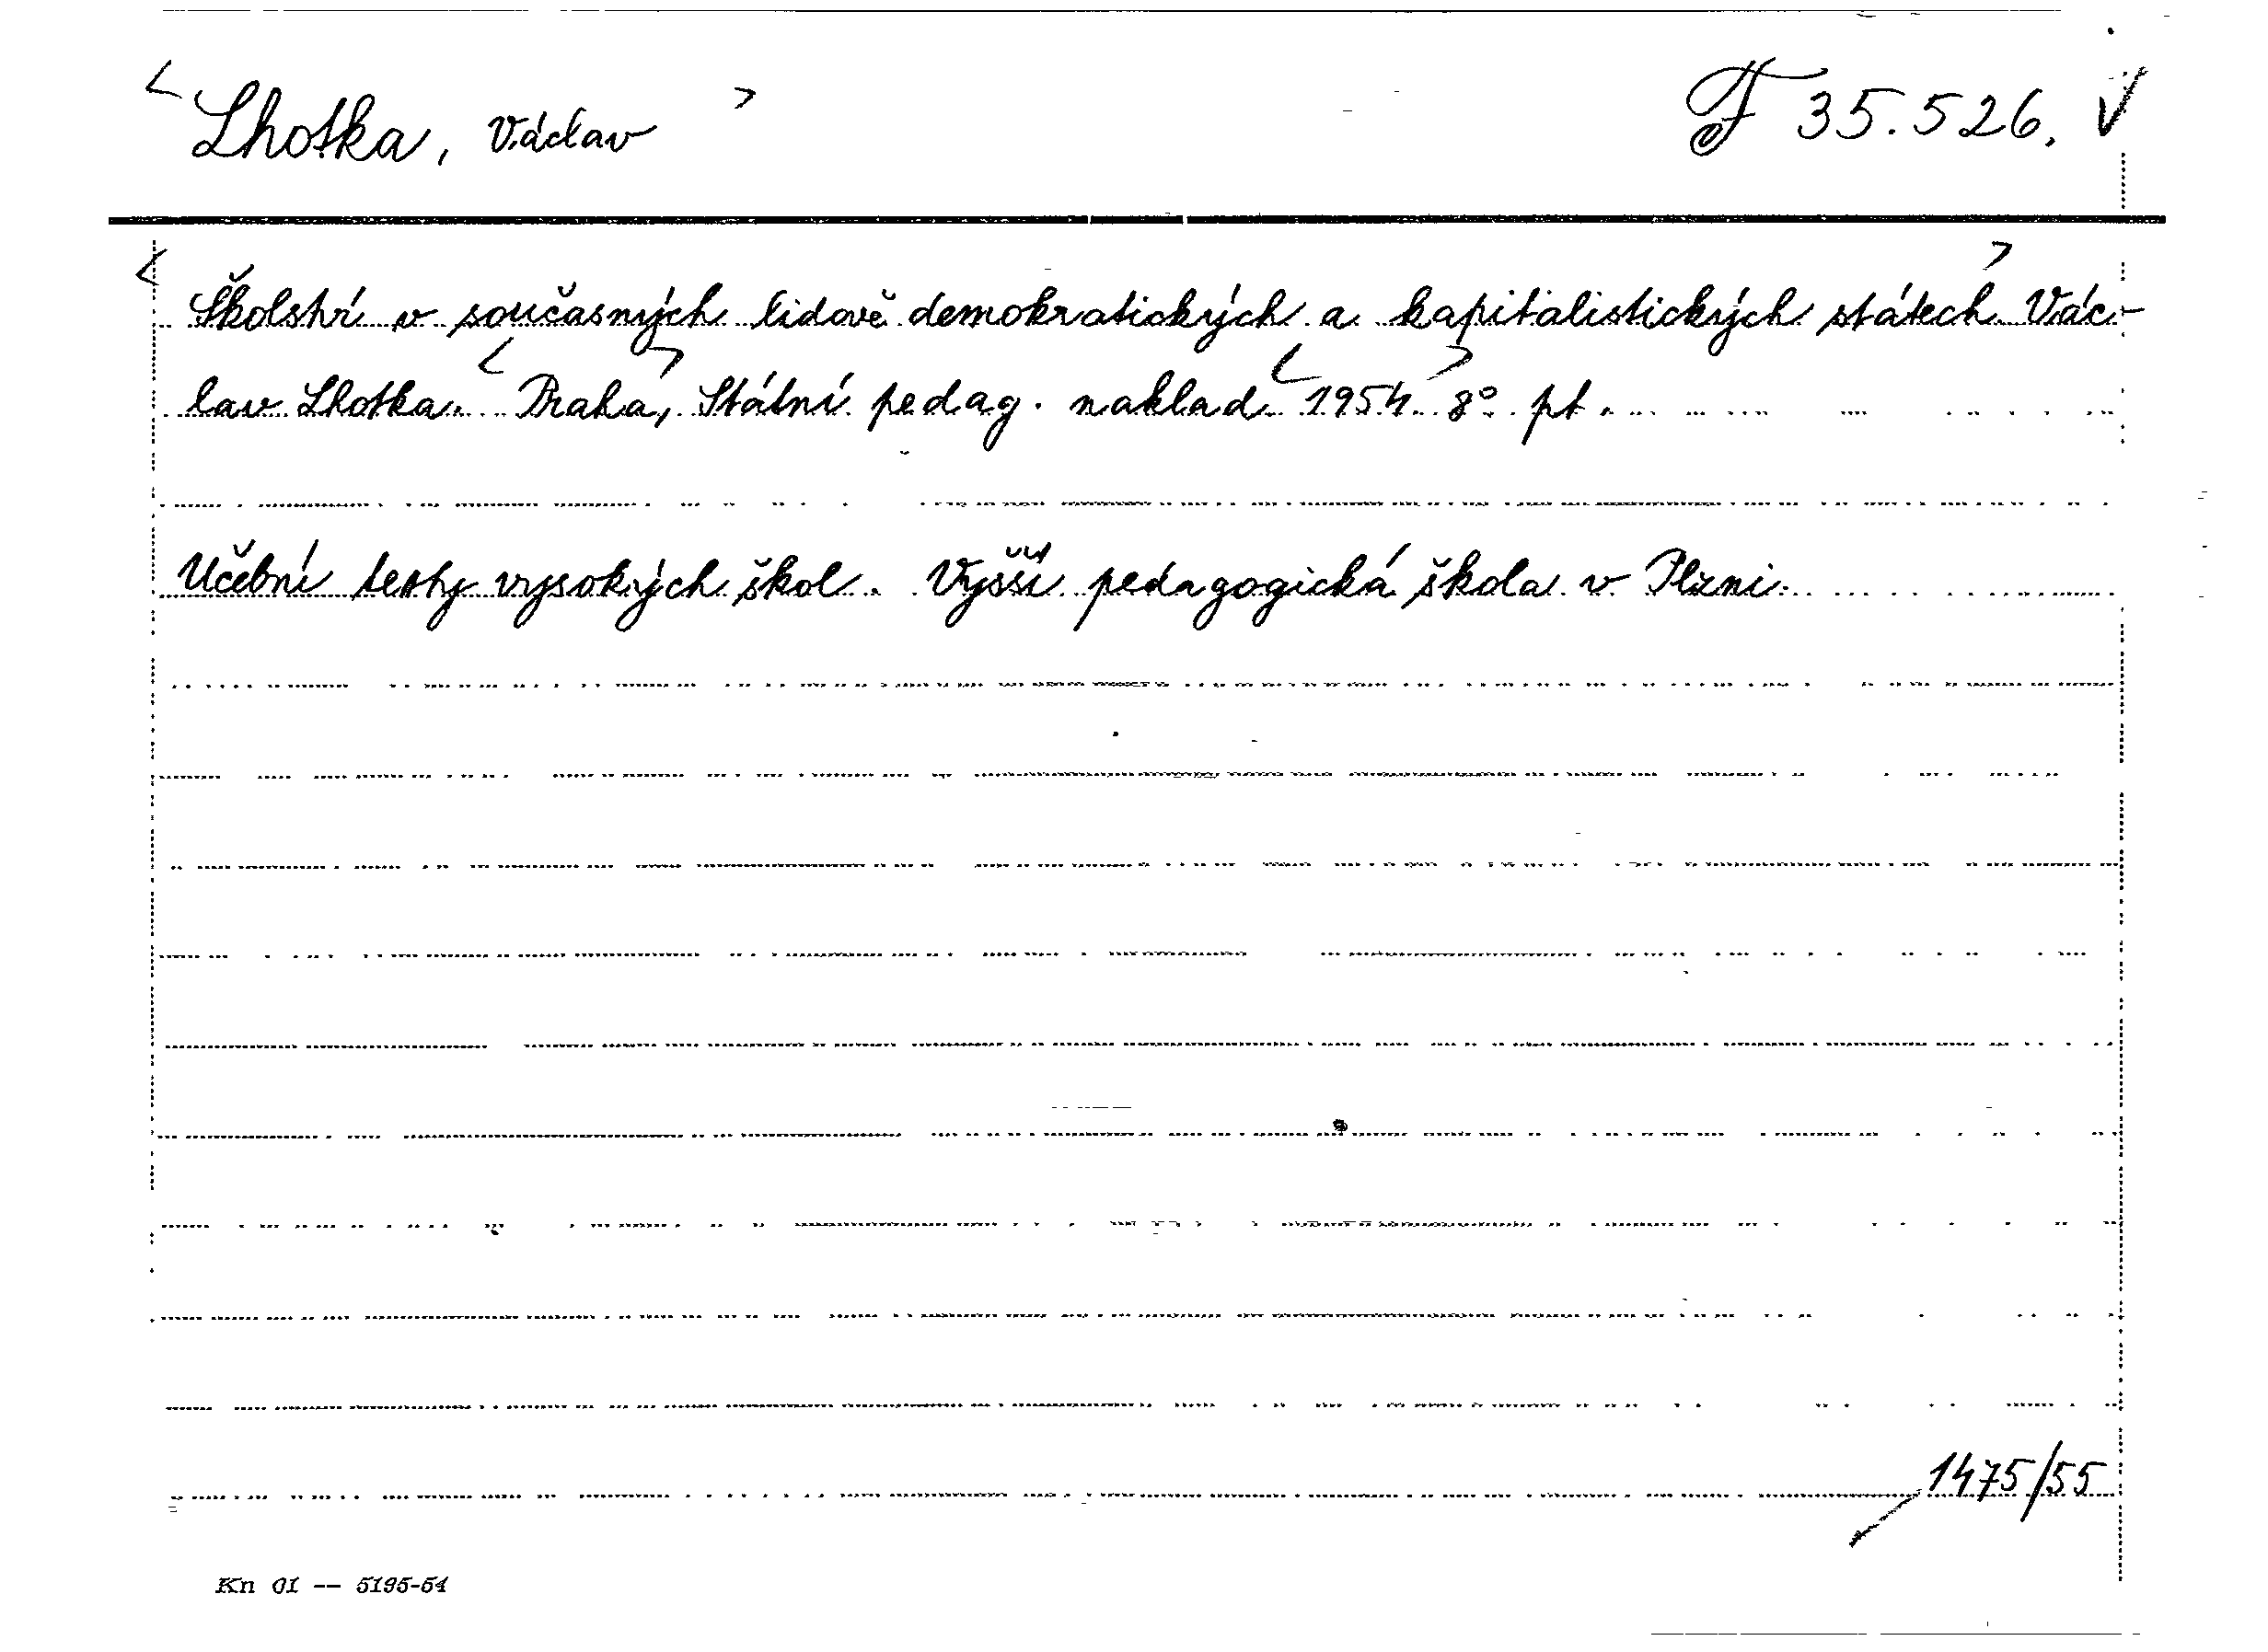 < Lhotka, Václav > F 35.526. V
< Školství v současných lidově demokratických a kapitalistických státech > Vác-
lav Lhotka. < Praha >, Státní pedag. naklad. < 1954 > 8° pt.
Učební texty vysokých škol. Vyšší pedagogická škola v Plzni.
1475/55
Kn 01 -- 5195-54